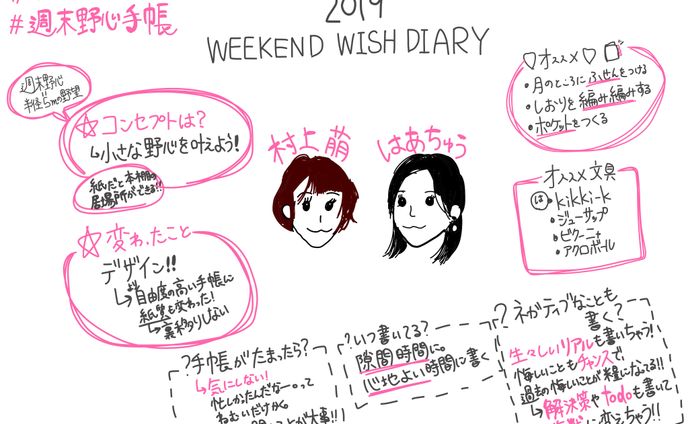 2019
#週末野心手帳
WEEKEND WISH DIARY
週末野心
=
半径5mの野望
☆コンセプトは?
↳小さな野心を叶えよう!
紙だと本棚に
居場所ができる!!
村上萌
はあちゅう
♡オススメ♡
・月のところにふせんをつける
・しおりを編み編みする
・ポケットをつくる
オススメ文具
は kikki-k
・ジュースアップ
・ピクーニャ
・アクロボール
☆変わったこと
デザイン!!
↳自由度の高い手帳に
紙質も変わった!
↳裏移りしない
?手帳がたまったら?
↳気にしない!
忙しかったんだなーって
ねむいだけかも。
ことが大事!!
?いつ書いてる?
隙間時間に。
心地よい時間に書く
?ネガティブなことも
書く?
生々しいリアルも書いちゃう!
悔しいこともチャンスで、
過去の悔しいことが糧になってる!!
↳解決策やtodoも書いて
変えちゃう!!